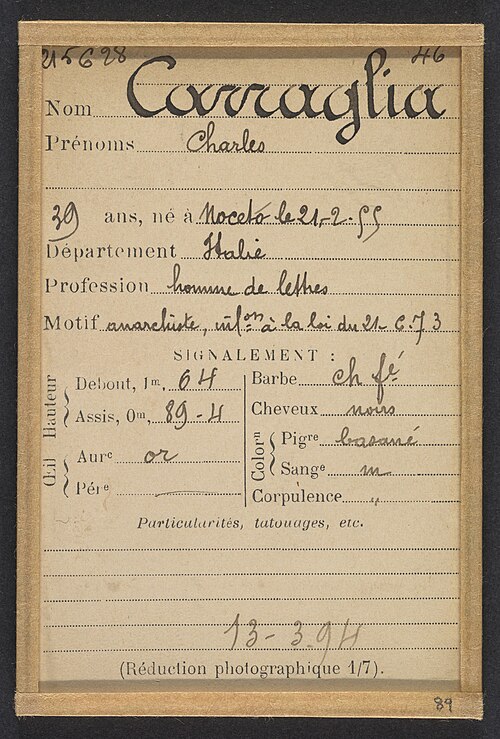 215628 46
Nom Carraglia
Prénoms Charles
39 ans, né à Noceto le 21-2-55
Département Italie
Profession homme de lettres
Motif anarchiste, inf.on à la loi du 21-6-73
SIGNALEMENT :
Hauteur
Debout, 1m, 64
Assis, 0m, 89-4
Œil
Aure or
Pére
Barbe ch fé
Cheveux noirs
Colorn
Pigre basané
Sange m
Corpulence "
Particularités, tatouages, etc.
13-3.94
(Réduction photographique 1/7).
89